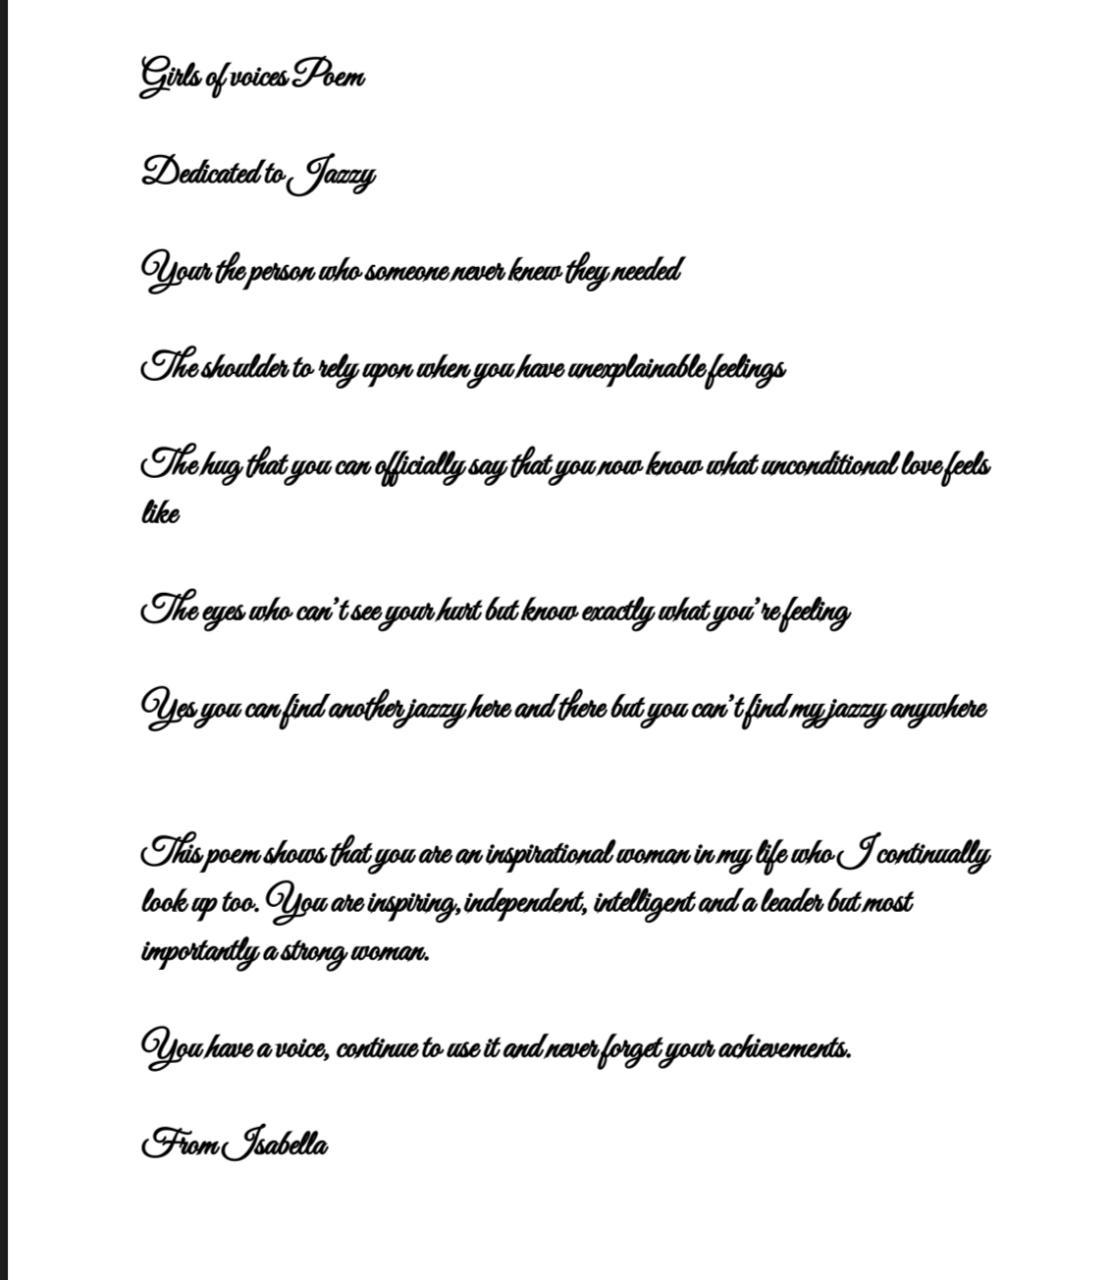 Girls of voices Poem
Dedicated to Jazzy
Your the person who someone never knew they needed
The shoulder to rely upon when you have unexplainable feelings
The hug that you can officially say that you now know what unconditional love feels
like
The eyes who can't see your hurt but know exactly what you're feeling
Yes you can find another jazzy here and there but you can't find my jazzy anywhere
This poem shows that you are an inspirational woman in my life who I continually
look up too. You are inspiring, independent, intelligent and a leader but most
importantly a strong woman.
You have a voice, continue to use it and never forget your achievements.
From Isabella